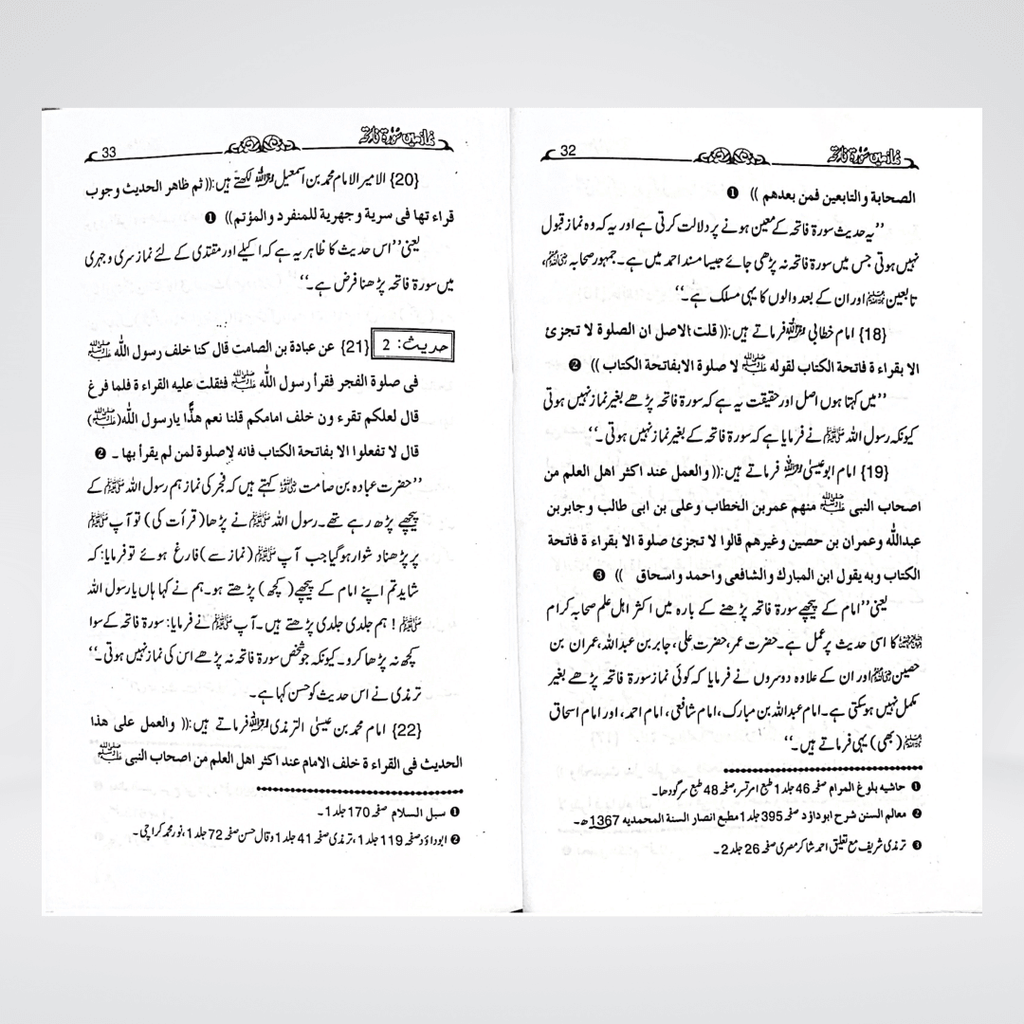 نماز میں سورۃ فاتحہ
32
الصحابة والتابعین فمن بعدهم )) ❶
’’یہ حدیث سورۃ فاتحہ کے معین ہونے پر دلالت کرتی ہے اور یہ کہ وہ نماز قبول
نہیں ہوتی جس میں سورۃ فاتحہ نہ پڑھی جائے جیسا مسند احمد میں ہے۔ جمہور صحابہ ؓ،
تابعین ؒ اور ان کے بعد والوں کا یہی مسلک ہے۔‘‘
{18} امام خطابی ؒ فرماتے ہیں:(( قلت الاصل ان الصلوة لا تجزئ
الا بقراء ة فاتحة الکتاب لقوله ﷺ لا صلوة الابفاتحة الکتاب )) ❷
’’میں کہتا ہوں اصل اور حقیقت یہ ہے کہ سورۃ فاتحہ پڑھے بغیر نماز نہیں ہوتی
کیونکہ رسول اللہ ﷺ نے فرمایا ہے کہ سورۃ فاتحہ کے بغیر نماز نہیں ہوتی۔‘‘
{19} امام ابوعیسیٰ ؒ فرماتے ہیں:(( والعمل عند اکثر اهل العلم من
اصحاب النبی ﷺ منهم عمر بن الخطاب وعلی بن ابی طالب وجابر بن
عبداللّٰه وعمران بن حصین وغیرهم قالوا لا تجزئ صلوة الا بقراء ة فاتحة
الکتاب وبه یقول ابن المبارك والشافعی واحمد واسحاق )) ❸
یعنی’’امام کے پیچھے سورۃ فاتحہ پڑھنے کے بارہ میں اکثر اہل علم صحابہ کرام
ؓ کا اسی حدیث پر عمل ہے۔ حضرت عمر، حضرت علی، جابر بن عبداللہ، عمران بن
حصین ؓ اور ان کے علاوہ دوسروں نے فرمایا کہ کوئی نماز سورۃ فاتحہ پڑھے بغیر
مکمل نہیں ہو سکتی ہے۔ امام عبداللہ بن مبارک، امام شافعی، امام احمد، اور امام اسحاق
ؒ (بھی) یہی فرماتے ہیں۔‘‘
❶ حاشیہ بلوغ المرام صفحہ 46 جلد 1 طبع امرتسر، صفحہ 48 طبع سرگودھا۔
❷ معالم السنن شرح ابوداؤد صفحہ 395 جلد 1 مطبع انصار السنة المحمدیه 1367ھ۔
❸ ترمذی شریف مع تعلیق احمد شاکر مصری صفحہ 26 جلد 2۔
نماز میں سورۃ فاتحہ
33
{20} الامیر الامام محمد بن اسمعیل ؒ لکھتے ہیں:(( ثم ظاهر الحدیث وجوب
قراء تها فی سریة وجهریة للمنفرد والمؤتم)) ❶
یعنی’’اس حدیث کا ظاہر یہ ہے کہ اکیلے اور مقتدی کے لئے نماز سری و جہری
میں سورۃ فاتحہ پڑھنا فرض ہے۔‘‘
حدیث: 2 {21} عن عبادة بن الصامت قال کنا خلف رسول اللّٰه ﷺ
فی صلوة الفجر فقرأ رسول اللّٰه ﷺ فثقلت علیه القراء ة فلما فرغ
قال لعلکم تقرء ون خلف امامکم قلنا نعم هذًّا یارسول اللّٰه(ﷺ)
قال لا تفعلوا الا بفاتحة الکتاب فانه لاصلوة لمن لم یقرأ بها ۔ ❷
’’حضرت عبادہ بن صامت ؓ کہتے ہیں کہ فجر کی نماز ہم رسول اللہ ﷺ کے
پیچھے پڑھ رہے تھے۔ رسول اللہ ﷺ نے پڑھا (قرأت کی) تو آپ ﷺ
پر پڑھنا دشوار ہو گیا جب آپ ﷺ (نماز سے) فارغ ہوئے تو فرمایا: کہ
شاید تم اپنے امام کے پیچھے (کچھ) پڑھتے ہو۔ ہم نے کہا ہاں یا رسول اللہ
ﷺ ! ہم جلدی جلدی پڑھتے ہیں۔ آپ ﷺ نے فرمایا: سورۃ فاتحہ کے سوا
کچھ نہ پڑھا کرو۔ کیونکہ جو شخص سورۃ فاتحہ نہ پڑھے اس کی نماز نہیں ہوتی۔‘‘
ترمذی نے اس حدیث کو حسن کہا ہے۔
{22} امام محمد بن عیسیٰ الترمذی ؒ فرماتے ہیں:(( والعمل علی هذا
الحدیث فی القراء ة خلف الامام عند اکثر اهل العلم من اصحاب النبی ﷺ
❶ سبل السلام صفحہ 170 جلد 1۔
❷ ابوداؤد صفحہ 119 جلد 1، ترمذی صفحہ 41 جلد 1 وقال حسن صفحہ 72 جلد 1، نور محمد کراچی۔